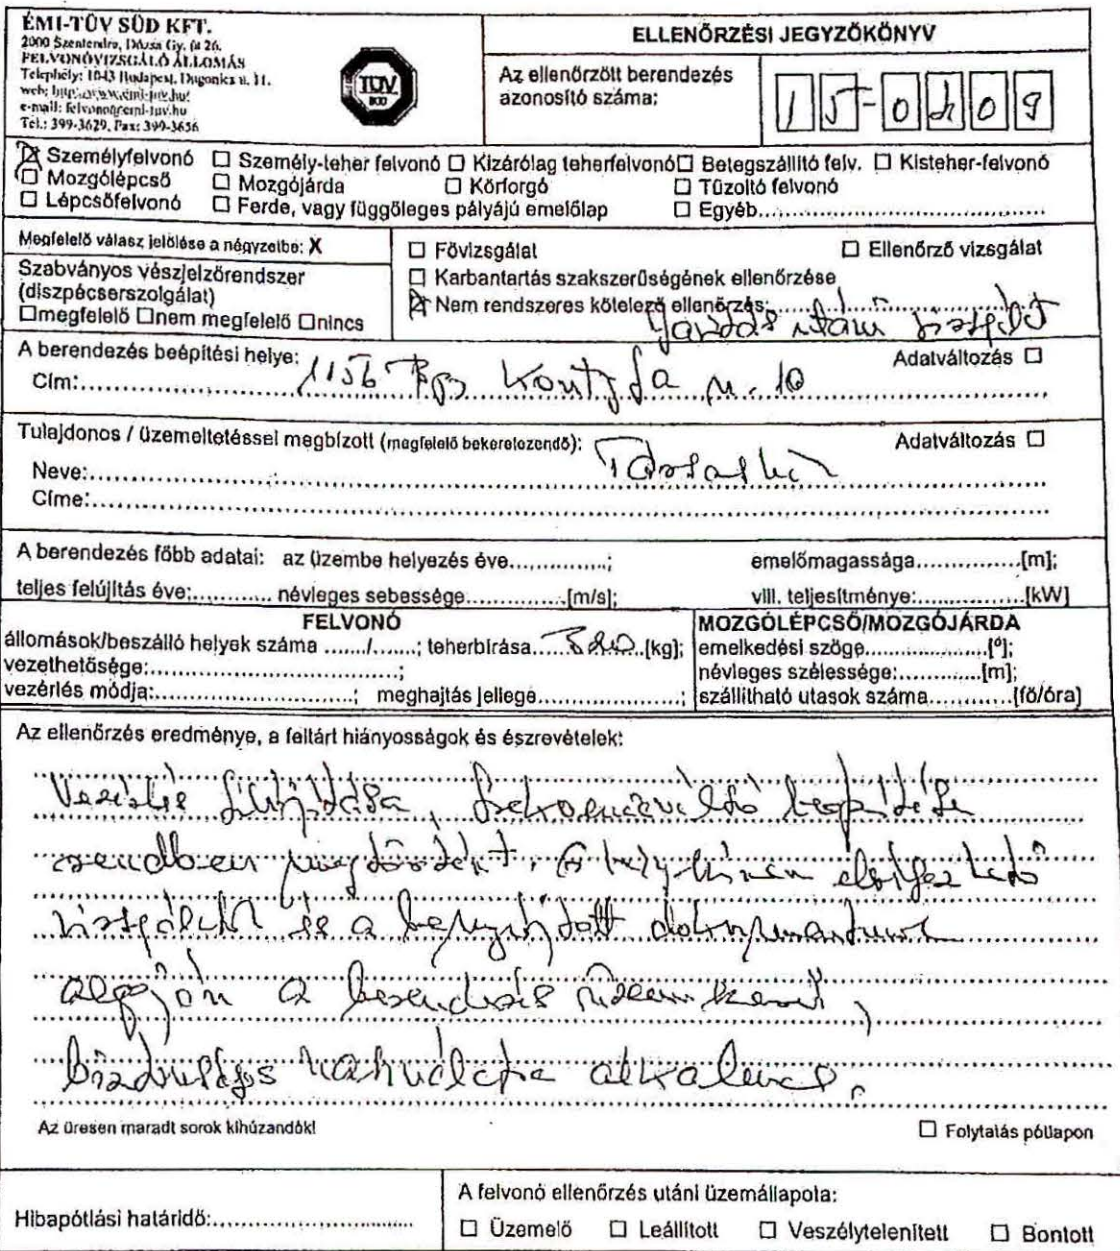 ÉMI-TÜV SÜD KFT.
2000 Szentendre, Dózsa Gy. út 26.
FELVONÓVIZSGÁLÓ ÁLLOMÁS
Telephely: 1043 Budapest, Dugonics u. 11.
web: http://www.emi-tuv.hu/
e-mail: felvono@emi-tuv.hu
Tel.: 399-3629, Fax: 399-3656
TÜV
SÜD
ELLENŐRZÉSI JEGYZŐKÖNYV
Az ellenőrzött berendezés
azonosító száma:
15-0209
☒ Személyfelvonó ☐ Személy-teher felvonó ☐ Kizárólag teherfelvonó ☐ Betegszállító felv. ☐ Kisteher-felvonó
☐ Mozgólépcső ☐ Mozgójárda ☐ Körforgó ☐ Tűzoltó felvonó
☐ Lépcsőfelvonó ☐ Ferde, vagy függőleges pályájú emelőlap ☐ Egyéb
Megfelelő válasz jelölése a négyzetbe: X
Szabványos vészjelzőrendszer
(diszpécserszolgálat)
☐megfelelő ☐nem megfelelő ☐nincs
☐ Fővizsgálat ☐ Ellenőrző vizsgálat
☐ Karbantartás szakszerűségének ellenőrzése
☒ Nem rendszeres kötelező ellenőrzés:
utáni vizsgálat
A berendezés beépítési helye: Adatváltozás ☐
Cím: 1156 Bp. Kontyfa u. 10
Tulajdonos / üzemeltetéssel megbízott (megfelelő bekeretezendő): Adatváltozás ☐
Neve: Társasház
Címe:
A berendezés főbb adatai: az üzembe helyezés éve..............; emelőmagassága...............[m];
teljes felújítás éve:............ névleges sebessége..............[m/s]; vill. teljesítménye:................[kW]
FELVONÓ
állomások/beszálló helyek száma ....../......; teherbírása 320 [kg];
vezethetősége:....................................;
vezérlés módja:.............................; meghajtás jellege.....................;
MOZGÓLÉPCSŐ/MOZGÓJÁRDA
emelkedési szöge..................[°];
névleges szélessége:............[m];
szállítható utasok száma............[fő/óra]
Az ellenőrzés eredménye, a feltárt hiányosságok és észrevételek:
Vezérlés felújítása, frekvenciaváltó beépítése
rendben megtörtént. A helyszínen elvégezhető
vizsgálatok és a benyújtott dokumentumok
alapján a berendezés üzemkész,
biztonságos használatra alkalmas.
Az üresen maradt sorok kihúzandók! ☐ Folytatás pótlapon
Hibapótlási határidő:
A felvonó ellenőrzés utáni üzemállapota:
☐ Üzemelő ☐ Leállított ☐ Veszélytelenített ☐ Bontott